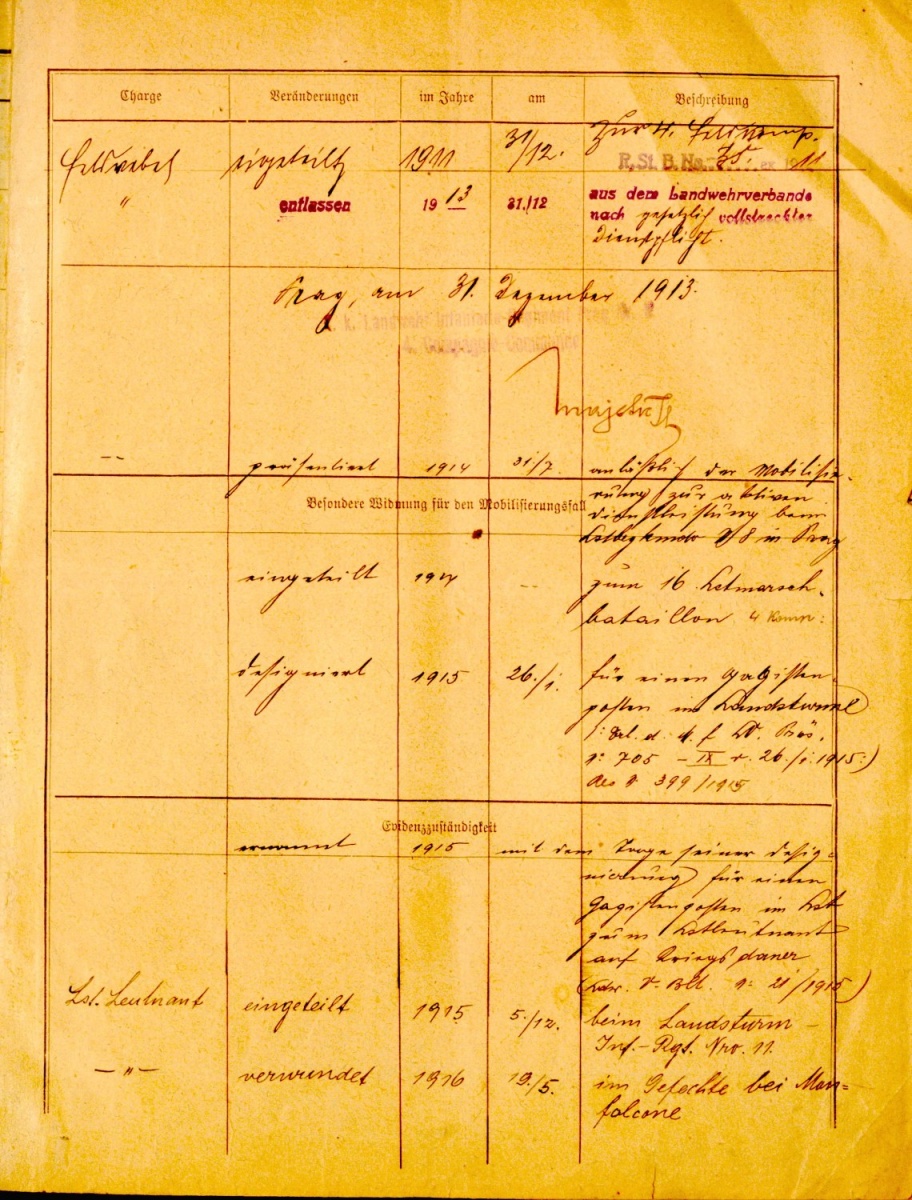 Charge Veränderungen im Jahre am Beschreibung
Feldwebel eingeteilt 1911 31/12. zur 4. Feldkomp.
R. St. B. No. 75. ex 1911
" entlassen 1913 31./12 aus dem Landwehrverbande
nach gesetzlich vollstreckter
Dienstpflicht.
Prag, am 31. Dezember 1913.
k. k. Landwehr Infanterie Regiment Prag Nr. 8
4. Compagnie
-- präsentiert 1914 31/7. anläßlich der Mobilisie-
rung zur aktiven
Besondere Widmung für den Mobilisierungsfall
Dienstleistung beim
8 in Prag
eingeteilt 1914 -- zum 16 Lstmarsch-
bataillon 4 Komp:
designiert 1915 26./1. für einen Gagisten-
posten im Landsturme
/: Erl. d. k. k.
N: 705 – IX v. 26./1. 1915 :)
Res N 399/1915
Evidenzzuständigkeit
ernannt 1915 mit dem Tage seiner Desig-
nierung für einen
Gagistenposten im Lst
zum Lstleutnant
auf Kriegsdauer
V. Bll. N: 21/1915)
Lst. Leutnant eingeteilt 1915 5./12. beim Landsturm –
Inf.-Rgt. Nro. 11.
— " — verwundet 1916 19./5. im Gefechte bei Mon=
falcone